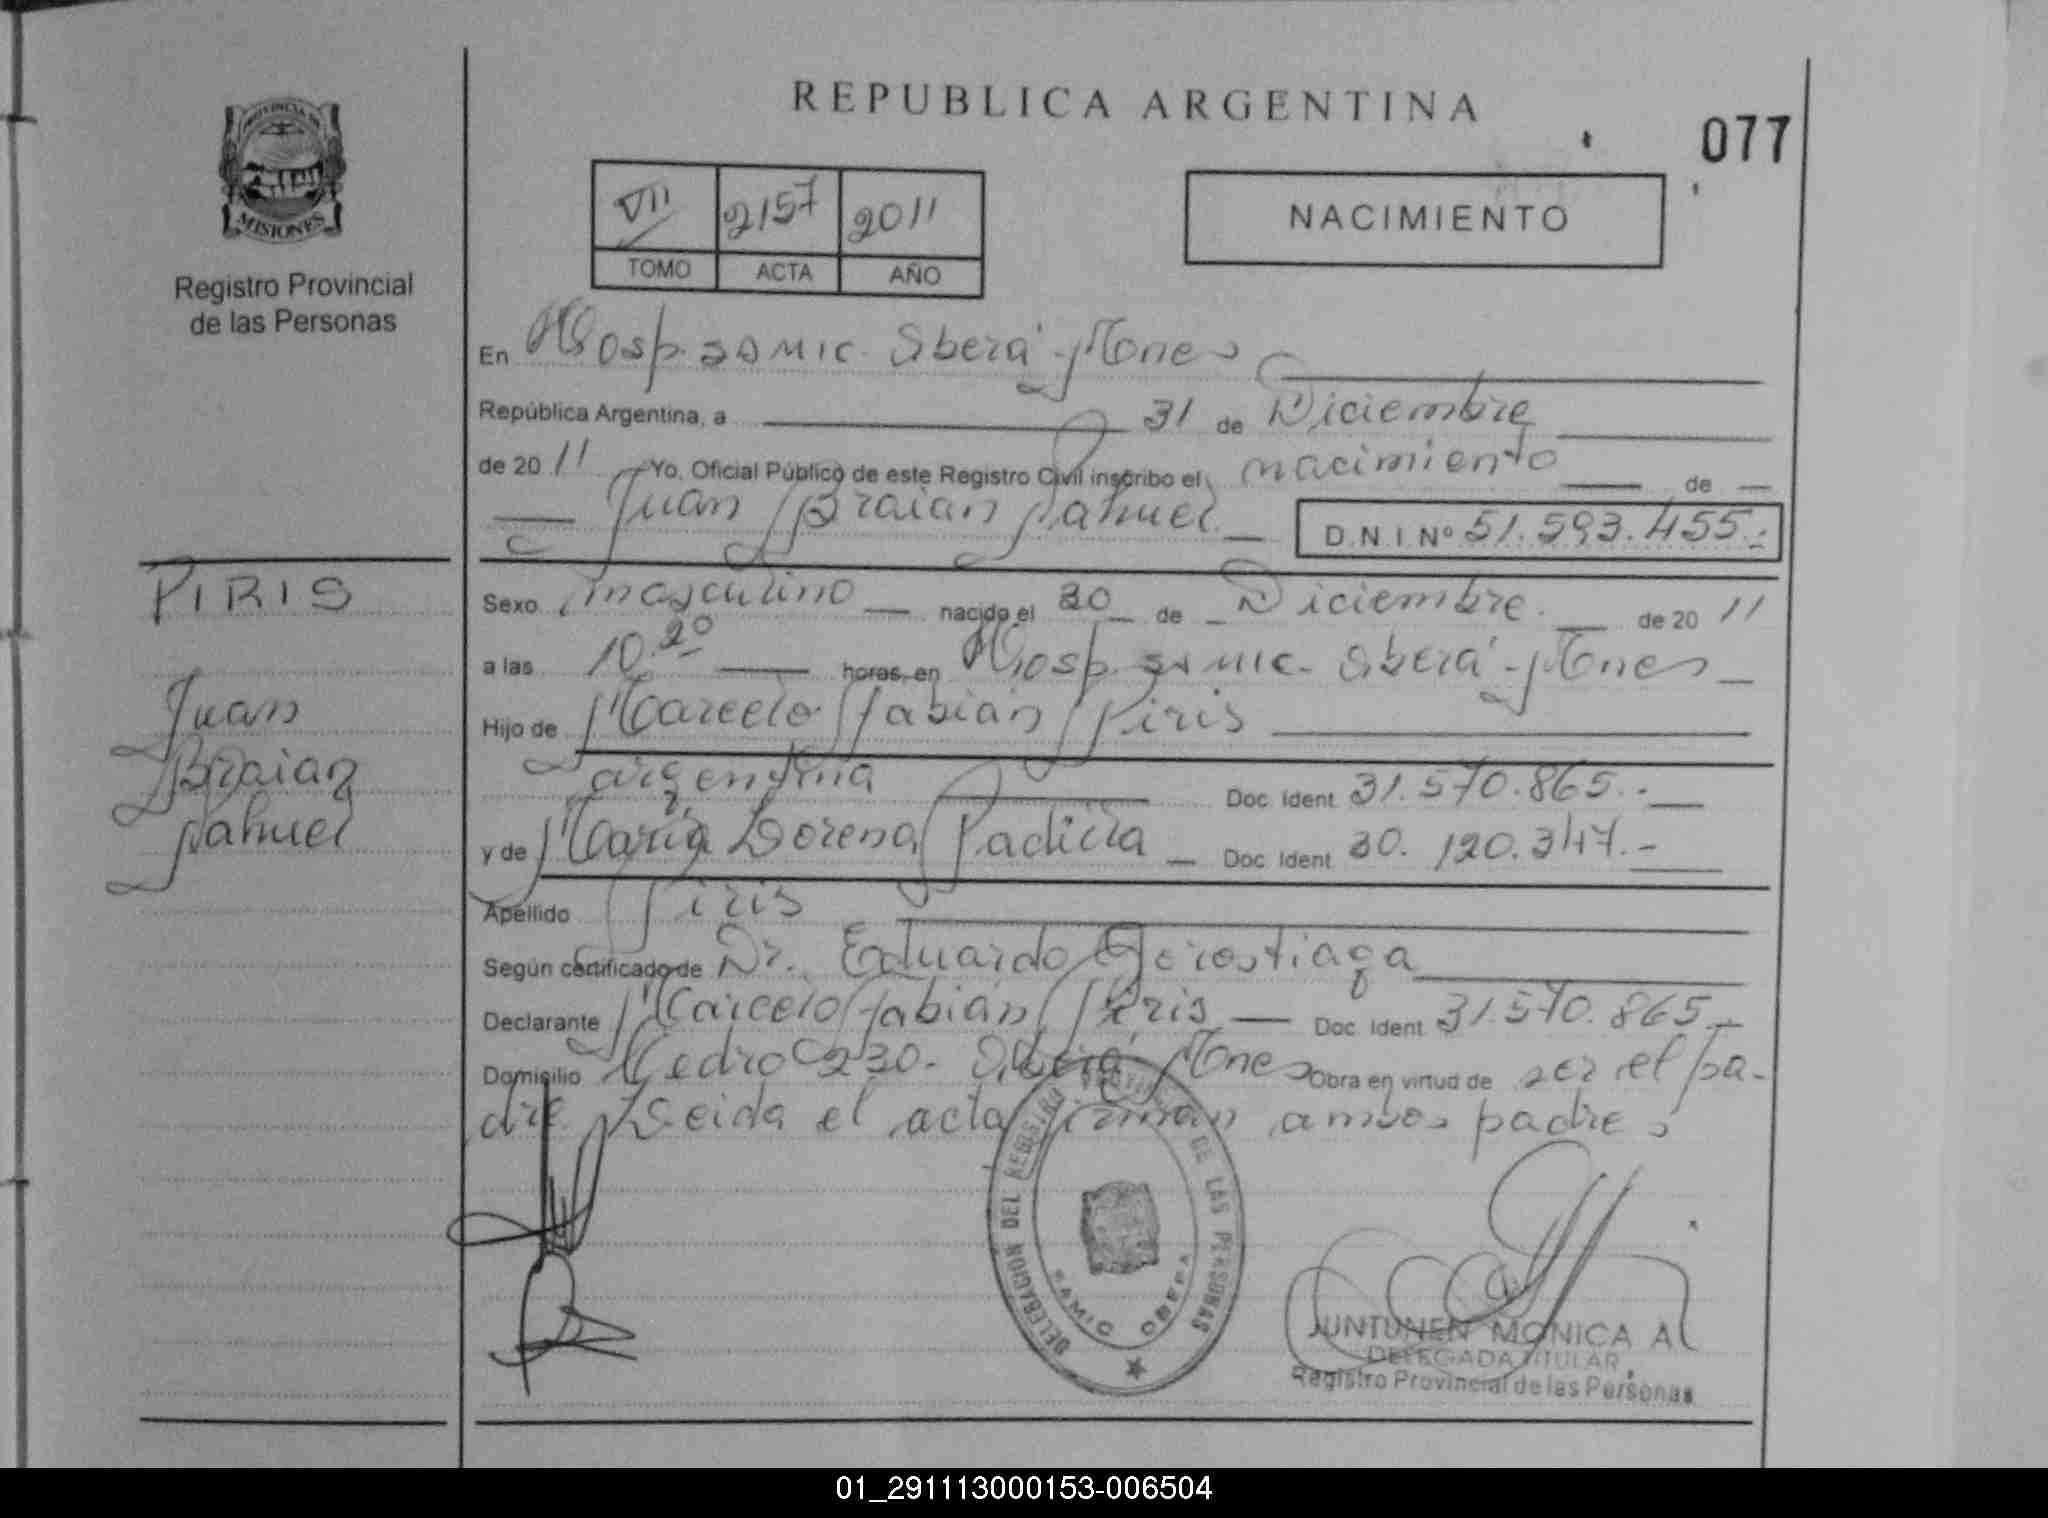 REPUBLICA ARGENTINA
077
PROVINCIA DE
MISIONES
Registro Provincial
de las Personas
VII 2157 2011
TOMO ACTA AÑO
NACIMIENTO
En Hosp. SAMIC. Oberá - Mnes
República Argentina, a 31 de Diciembre
de 2011 Yo, Oficial Público de este Registro Civil inscribo el nacimiento de
Juan Braian Nahuel D.N.I. Nº 51.593.455.-
PIRIS
Juan
Braian
Nahuel
Sexo masculino nacido el 30 de Diciembre. de 2011
a las 10.20 horas, en Hosp. SAMIC. Oberá - Mnes
Hijo de Marcelo Fabián Piris
argentina Doc. Ident. 31.570.865.-
y de María Lorena Padilla Doc. Ident. 30.120.347.-
Apellido Piris
Según certificado de Dr. Eduardo Gorostiaga
Declarante Marcelo Fabián Piris Doc. Ident. 31.570.865.-
Domicilio 230. Oberá Mnes Obra en virtud de ser el pa-
dre. Leida el acta firman ambos padres
DELEGACION DEL REGISTRO PROVINCIAL DE LAS PERSONAS
SAMIC OBERA
JUNTUNEN MONICA A
DELEGADA TITULAR
Registro Provincial de las Personas
01_291113000153-006504